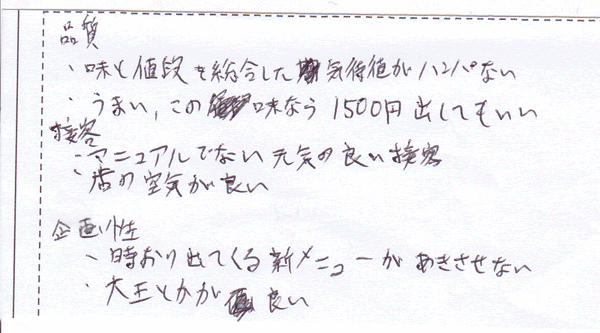 品質
・味と値段を総合した気待値がハンパない
・うまい、この味なら1500円出してもいい
接客
・マニュアルでない元気の良い接客
・店の空気が良い
企画性
・時おり出てくる新メニューがあきさせない
・大王とかが良い